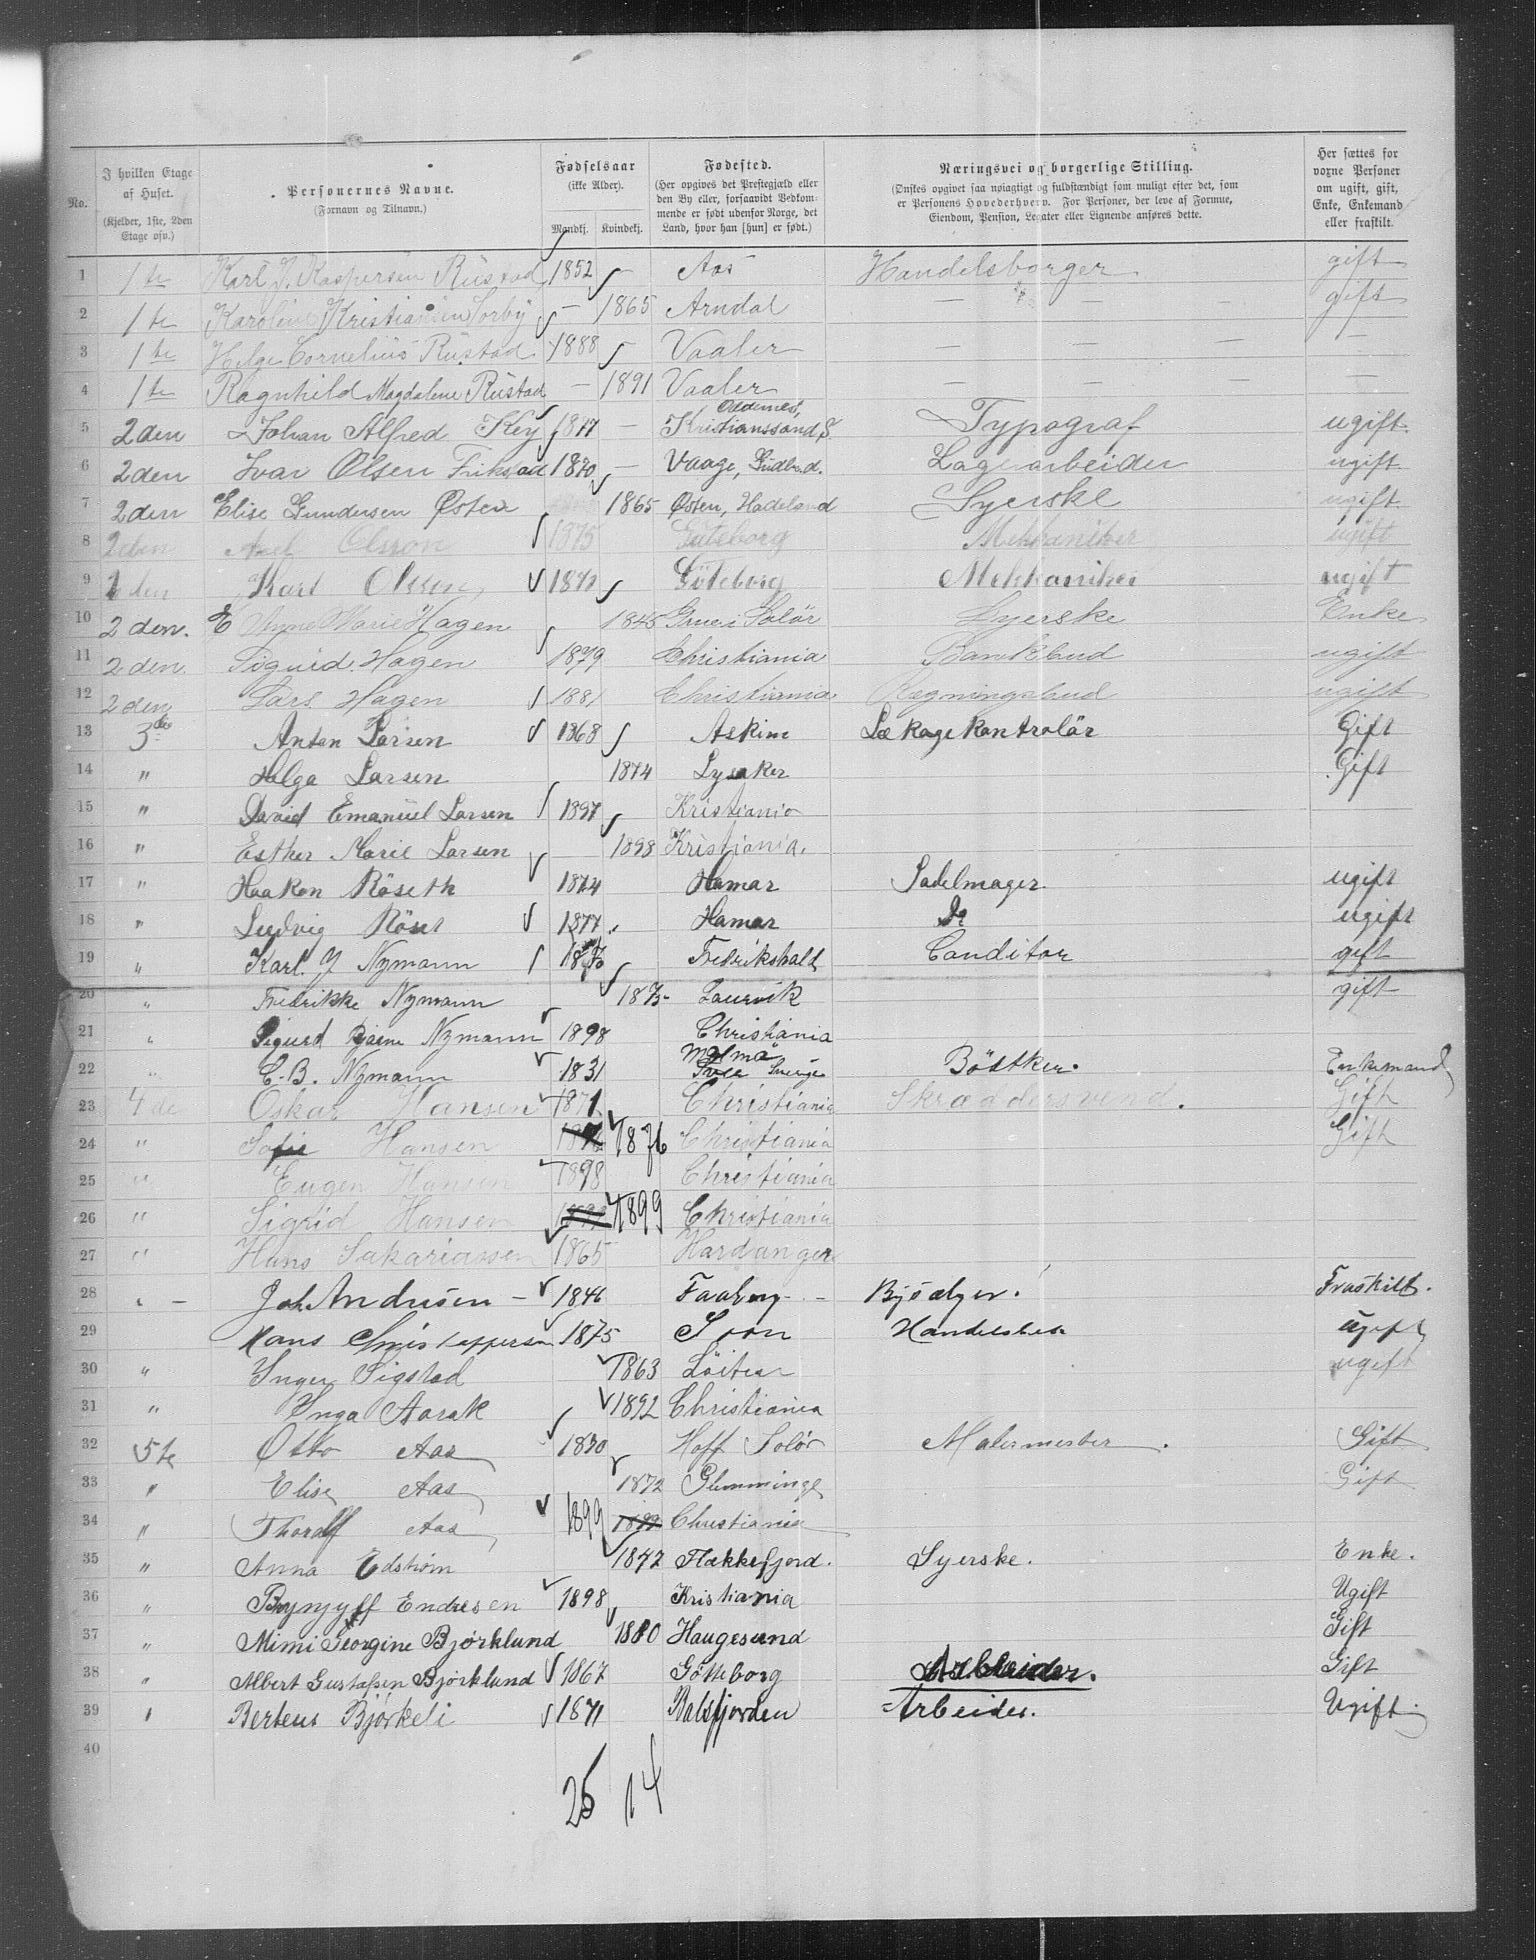 No. | I hvilken Etage af Huset. (Kjelder, 1ste, 2den Etage osv.) | Personernes Navne. (Fornavn og Tilnavn.) | Fødselsaar (ikke Alder). Mandkj. Kvindekj. | Fødested. (Her opgives det Prestegjæld eller den By eller, forsaavidt Vedkommende er født udenfor Norge, det Land, hvor han [hun] er født.) | Næringsvei og borgerlige Stilling. (Ønskes opgivet saa nøiagtigt og fuldstændigt som muligt efter det, som er Personens Hovederhverv. For Personer, der leve af Formue, Eiendom, Pension, Legater eller Lignende anføres dette. | Her sættes for voxne Personer om ugift, gift, Enke, Enkemand eller fraskilt.
1 1te Karl J. Kaspersen Rustad 1852 Aas Handelsborger gift
2 1te Karoline Kristiansen Sorby — 1865 Arndal — — — gift
3 1te Helge Cornelius Rustad 1888 Vaaler — — — —
4 1te Ragnhild Magdalene Rustad — 1891 Vaaler — — — —
5 2den Johan Alfred Key 1877 — Oddernes, Kristianssand S. Typograf ugift.
6 2den Ivar Olsen 1870 — Vaage, Gudbrd. Lagerarbeider ugift
7 2den Elise Gundersen Østen 1865 Østen, Hadeland Syerske ugift
8 2den Axel Olsson 1875 Göteborg Mekkaniker ugift
9 2den Karl Olssen 1872 Göteborg Mekkaniker ugift
10 2den. E Anne Marie Hagen 1845 Grue i Solör Syerske Enke
11 2den. Sigurd Hagen 1879 Christiania Bankbud ugift
12 2den Lars Hagen 1881 Christiania Regningsbud ugift
13 3die Anton Larsen 1868 Askim Lækagekontrolör Gift
14 " Helga Larsen 1874 Lysaker Gift
15 " David Emanuel Larsen 1897 Kristiania
16 " Esther Marie Larsen 1898 Kristiania.
17 " Haakon Röseth 1874 Hamar Sadelmager ugift
18 " Ludvig Röset 1877 Hamar Do ugift
19 " Karl. J Nymann 1870 Fredrikshald Conditor gift
20 " Fredrikke Nymann 1875 Laurvik gift
21 " Sigurd Bjarne Nymann 1898 Christiania
22 " C.B. Nymann 1831 Malmø Sverige Bödtker. Enkemand
23 4de Oskar Hansen 1871 Christiania Skræddersvend. Gift
24 " Sofie Hansen 1876 Christiania Gift
25 " Eugen Hansen 1898 Christiania
26 " Sigrid Hansen 1899 Christiania
27 " Hans Sakariassen 1865 Hardanger
28 " — Joh. Andersen — 1846 Faaberg — Bysælger. Fraskilt.
29 Hans Christoppersen 1875 Soon Handelsbet. ugift
30 " Inger Sigstad 1863 Löiten ugift
31 " Inga Aarak 1892 Christiania
32 5te Otto Aas 1830 Hoff Solör Malermester. Gift
33 " Elise Aas 1872 Glemminge Gift
34 " Thoralf Aas 1899 Christiania
35 " Anna Edström 1842 Flækkefjord. Syerske. Enke.
36 " Brynjulf Endresen 1898 Kristiania Ugift
37 " Mimi Georgine Björklund 1880 Haugesund Gift
38 " Albert Gustafsen Björklund 1867 Götteborg Arbeider. Gift
39 " Berteus Björkeli 1871 Balsfjorden Arbeider. Ugift.
40
25 14